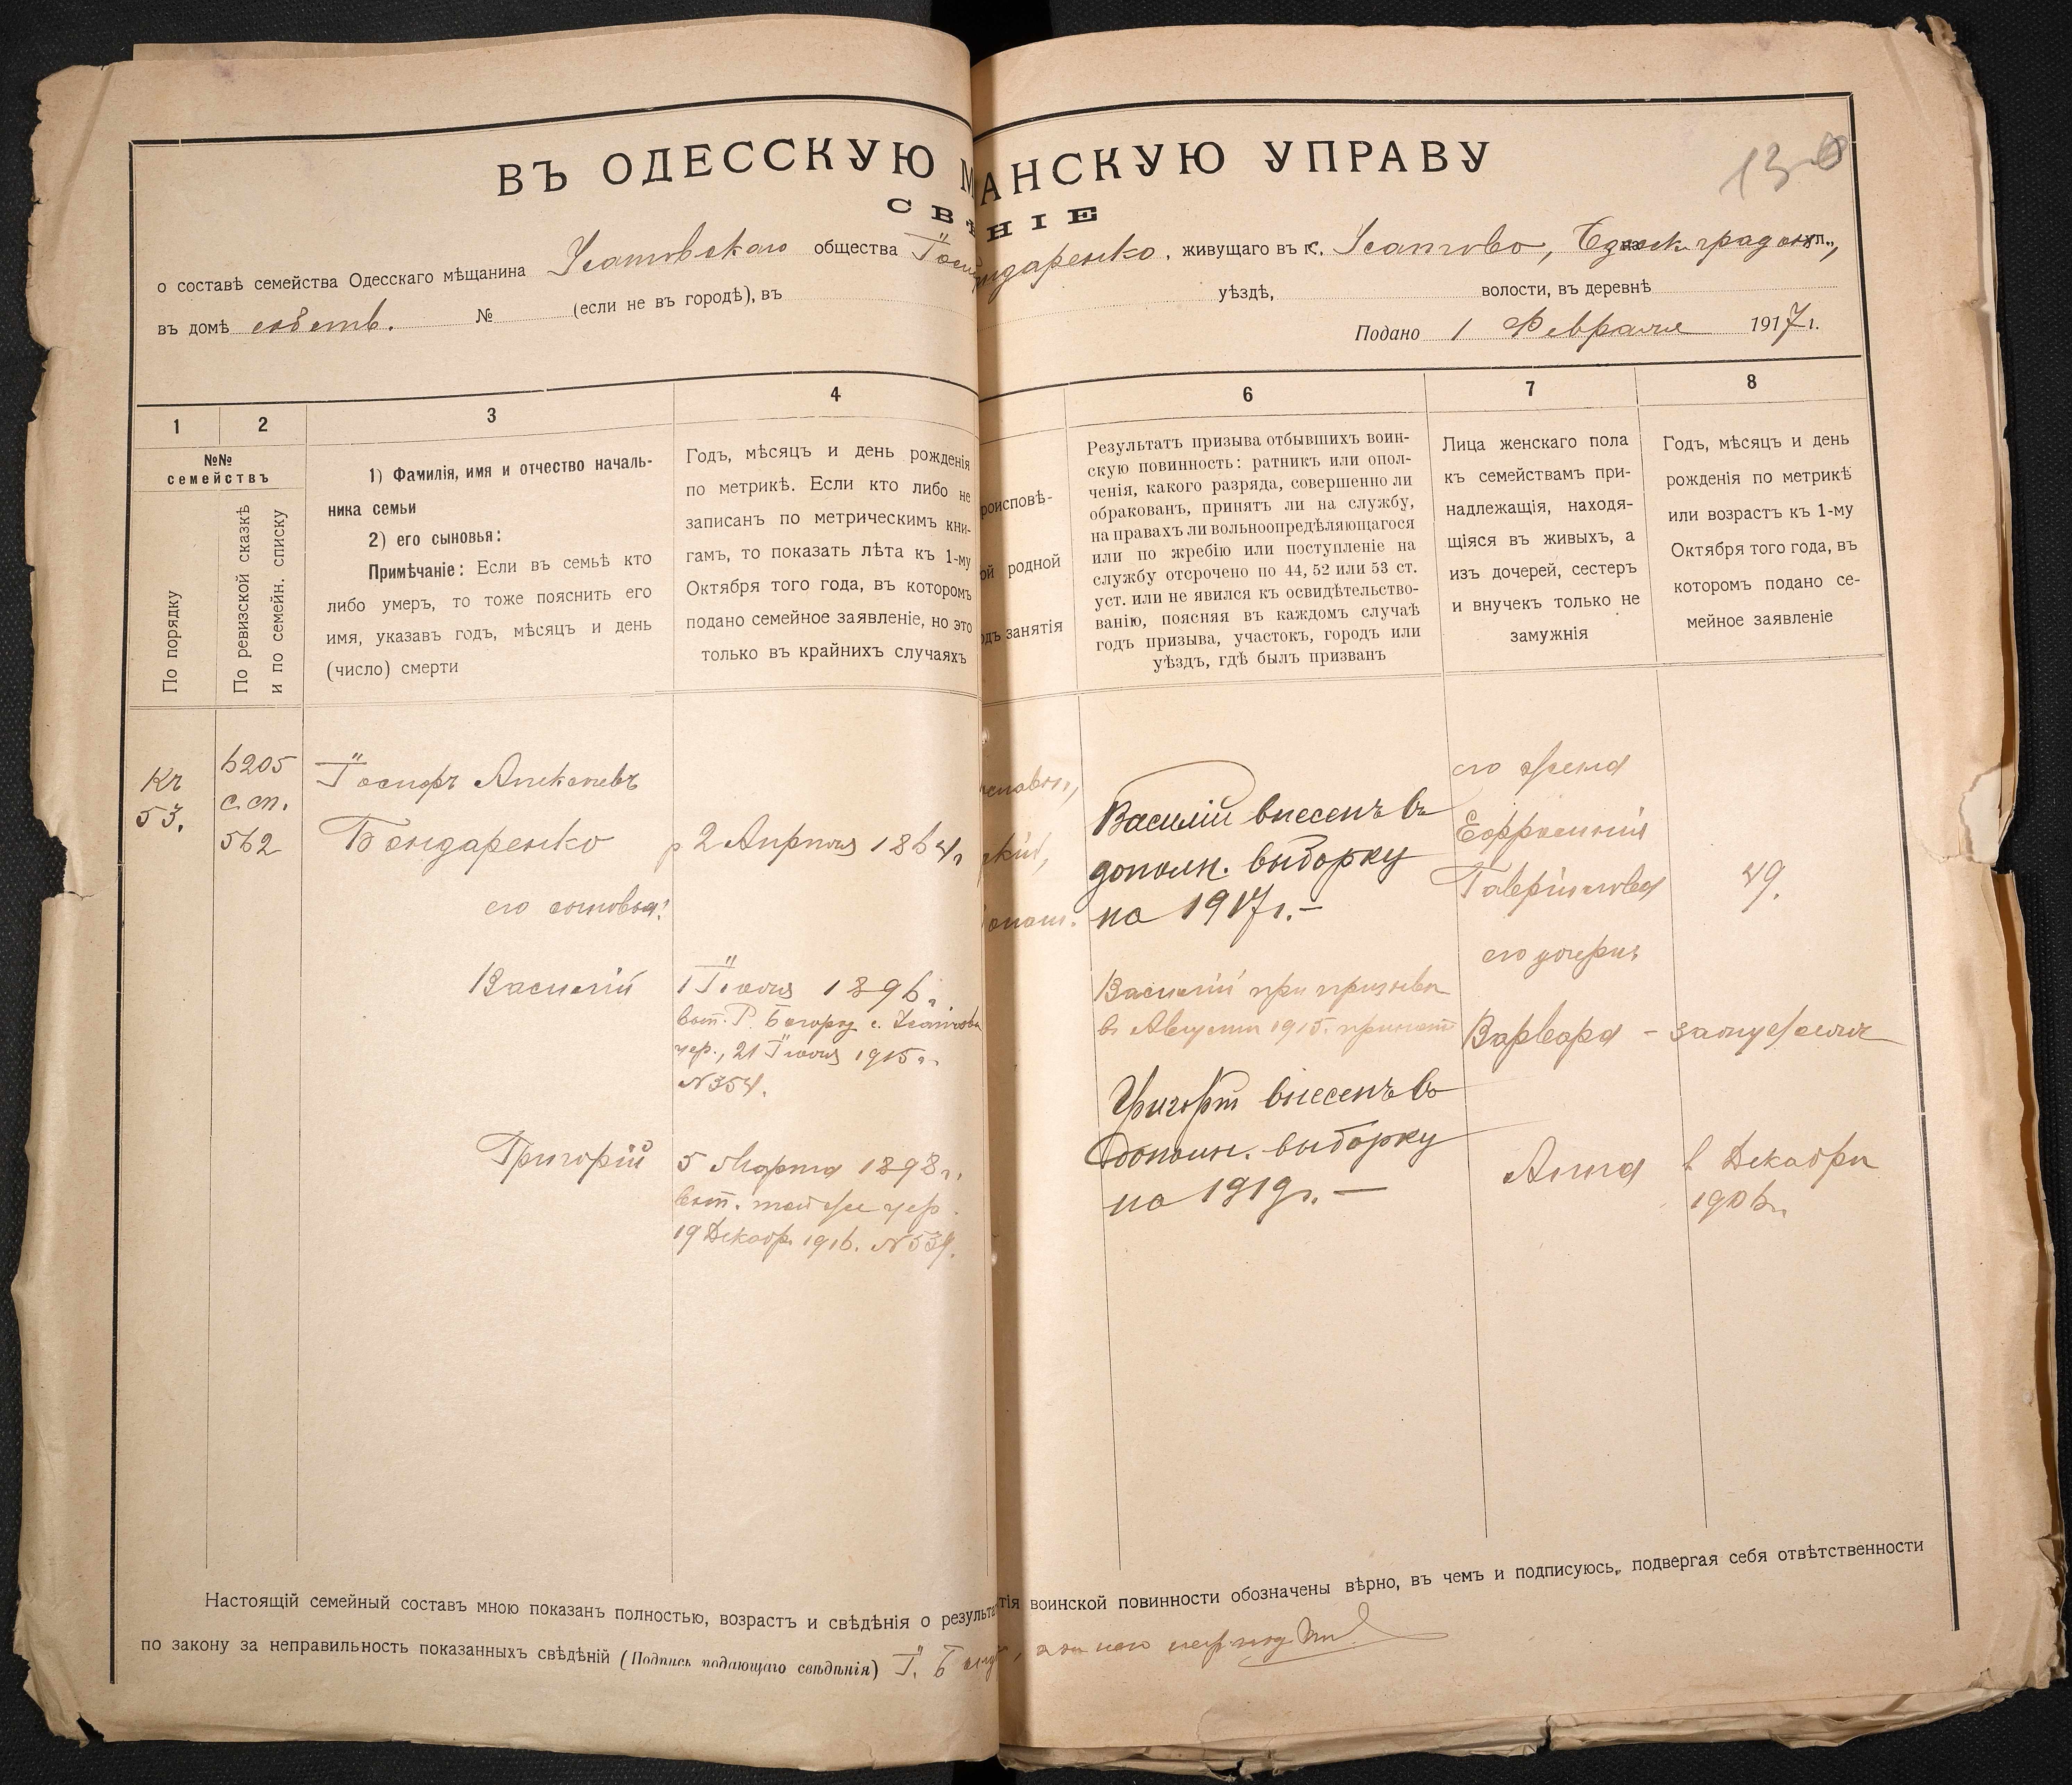 ВЪ ОДЕССКУЮ М АНСКУЮ УПРАВУ
130
СВѢ НІЕ
о составѣ семейства Одесскаго мѣщанина Усатовскаго общества Іоси ндаренко, живущаго въ с. Усатово, град ул.,
въ домѣ собств. № (если не въ городѣ), въ уѣздѣ, волости, въ деревнѣ
Подано 1 Февраля 1917 г.
1 2 3 4 6 7 8
№№ семействъ
По порядку
По ревизской сказкѣ и по семейн. списку
1) Фамилія, имя и отчество началь-
ника семьи
2) его сыновья:
Примѣчаніе: Если въ семьѣ кто
либо умеръ, то тоже пояснить его
имя, указавъ годъ, мѣсяцъ и день
(число) смерти
Годъ, мѣсяцъ и день рожденія
по метрикѣ. Если кто либо не
записанъ по метрическимъ кни-
гамъ, то показать лѣта къ 1-му
Октября того года, въ которомъ
подано семейное заявленіе, но это
только въ крайнихъ случаяхъ
роисповѣ-
ой родной
одъ занятія
Результатъ призыва отбывшихъ воин-
скую повинность: ратникъ или опол-
ченія, какого разряда, совершенно ли
обракованъ, принятъ ли на службу,
на правахъ ли вольноопредѣляющагося
или по жребію или поступленіе на
службу отсрочено по 44, 52 или 53 ст.
уст. или не явился къ освидѣтельство-
ванію, поясняя въ каждомъ случаѣ
годъ призыва, участокъ, городъ или
уѣздъ, гдѣ былъ призванъ
Лица женскаго пола
къ семействамъ при-
надлежащія, находя-
щіяся въ живыхъ, а
изъ дочерей, сестеръ
и внучекъ только не
замужнія
Годъ, мѣсяцъ и день
рожденія по метрикѣ
или возрастъ къ 1-му
Октября того года, въ
которомъ подано се-
мейное заявленіе
Кг
53.
6205
с. сп.
562
Іосифъ Алексѣевъ
Бондаренко
его сыновья:
Василій
Григорій
р 2 Апрѣля 1864 г.
1 Іюня 1896 г.
вып. Р. Богор. с. Усатова
цер., 21 Іюня 1915 г.
№ 354.
5 Марта 1898 г.
вып. той же цер.
19 Декабр. 1916. № 539.
славн,
скій,
Василій внесенъ въ
дополн. выборку
на 1917 г. —
Василій при призывѣ
въ Августѣ 1915 г. принятъ
Григорій внесенъ въ
дополн. выборку
на 1919 г. —
его жена
Ефросинія
Гавріилова 49.
его дочери:
Варвара - замужемъ
Анна
Декабря
1906 г.
Настоящій семейный составъ мною показанъ полностью, возрастъ и свѣдѣнія о результа тія воинской повинности обозначены вѣрно, въ чемъ и подписуюсь, подвергая себя отвѣтственности
по закону за неправильность показанныхъ свѣдѣній (Подпись подающаго свѣдѣнія) І. Бонд